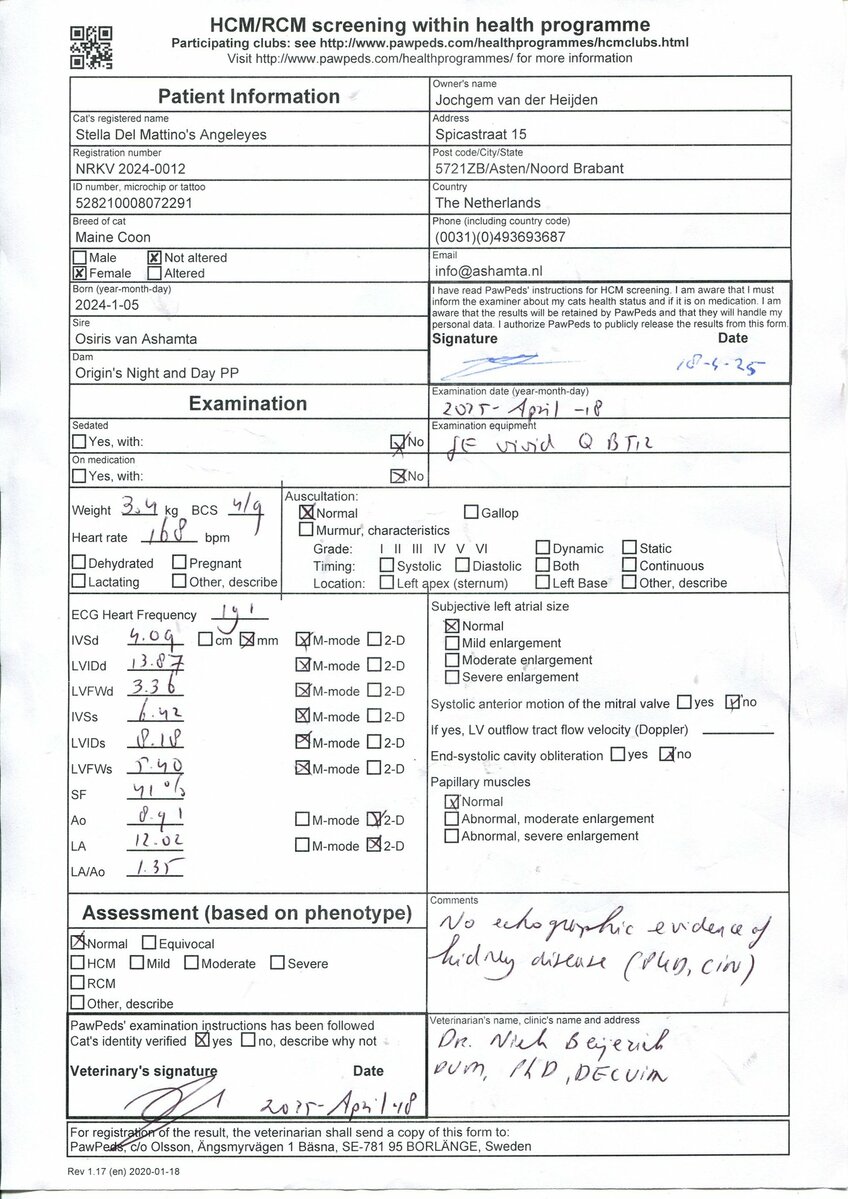 HCM/RCM screening within health programme
Participating clubs: see http://www.pawpeds.com/healthprogrammes/hcmclubs.html
Visit http://www.pawpeds.com/healthprogrammes/ for more information
Patient Information
Owner's name
Jochgem van der Heijden
Cat's registered name
Stella Del Mattino's Angeleyes
Address
Spicastraat 15
Registration number
NRKV 2024-0012
Post code/City/State
5721ZB/Asten/Noord Brabant
ID number, microchip or tattoo
528210008072291
Country
The Netherlands
Breed of cat
Maine Coon
Phone (including country code)
(0031)(0)493693687
Male Not altered
Female Altered
Email
info@ashamta.nl
Born (year-month-day)
2024-1-05
Sire
Osiris van Ashamta
Dam
Origin's Night and Day PP
I have read PawPeds' instructions for HCM screening. I am aware that I must
inform the examiner about my cats health status and if it is on medication. I am
aware that the results will be retained by PawPeds and that they will handle my
personal data. I authorize PawPeds to publicly release the results from this form.
Signature Date
18-4-25
Examination
Examination date (year-month-day)
2025-April-18
Sedated
Yes, with: No
Examination equipment
GE vivid Q BT12
On medication
Yes, with: No
Weight 3.4 kg BCS 4/9
Heart rate 168 bpm
Dehydrated Pregnant
Lactating Other, describe
Auscultation:
Normal Gallop
Murmur, characteristics
Grade: I II III IV V VI Dynamic Static
Timing: Systolic Diastolic Both Continuous
Location: Left apex (sternum) Left Base Other, describe
ECG Heart Frequency 191
IVSd 4.09 cm mm M-mode 2-D
LVIDd 13.87 M-mode 2-D
LVFWd 3.36 M-mode 2-D
IVSs 6.42 M-mode 2-D
LVIDs 8.18 M-mode 2-D
LVFWs 5.40 M-mode 2-D
SF 41%
Ao 8.91 M-mode 2-D
LA 12.02 M-mode 2-D
LA/Ao 1.35
Subjective left atrial size
Normal
Mild enlargement
Moderate enlargement
Severe enlargement
Systolic anterior motion of the mitral valve yes no
If yes, LV outflow tract flow velocity (Doppler)
End-systolic cavity obliteration yes no
Papillary muscles
Normal
Abnormal, moderate enlargement
Abnormal, severe enlargement
Assessment (based on phenotype)
Normal Equivocal
HCM Mild Moderate Severe
RCM
Other, describe
Comments
No echographic evidence of
kidney disease (PKD, CIN)
PawPeds' examination instructions has been followed
Cat's identity verified yes no, describe why not
Veterinary's signature Date
2025-April-18
Veterinarian's name, clinic's name and address
Dr. Niek Beijerink
DVM, PhD, DECVIM
For registration of the result, the veterinarian shall send a copy of this form to:
PawPeds, c/o Olsson, Ängsmyrvägen 1 Bäsna, SE-781 95 BORLÄNGE, Sweden
Rev 1.17 (en) 2020-01-18